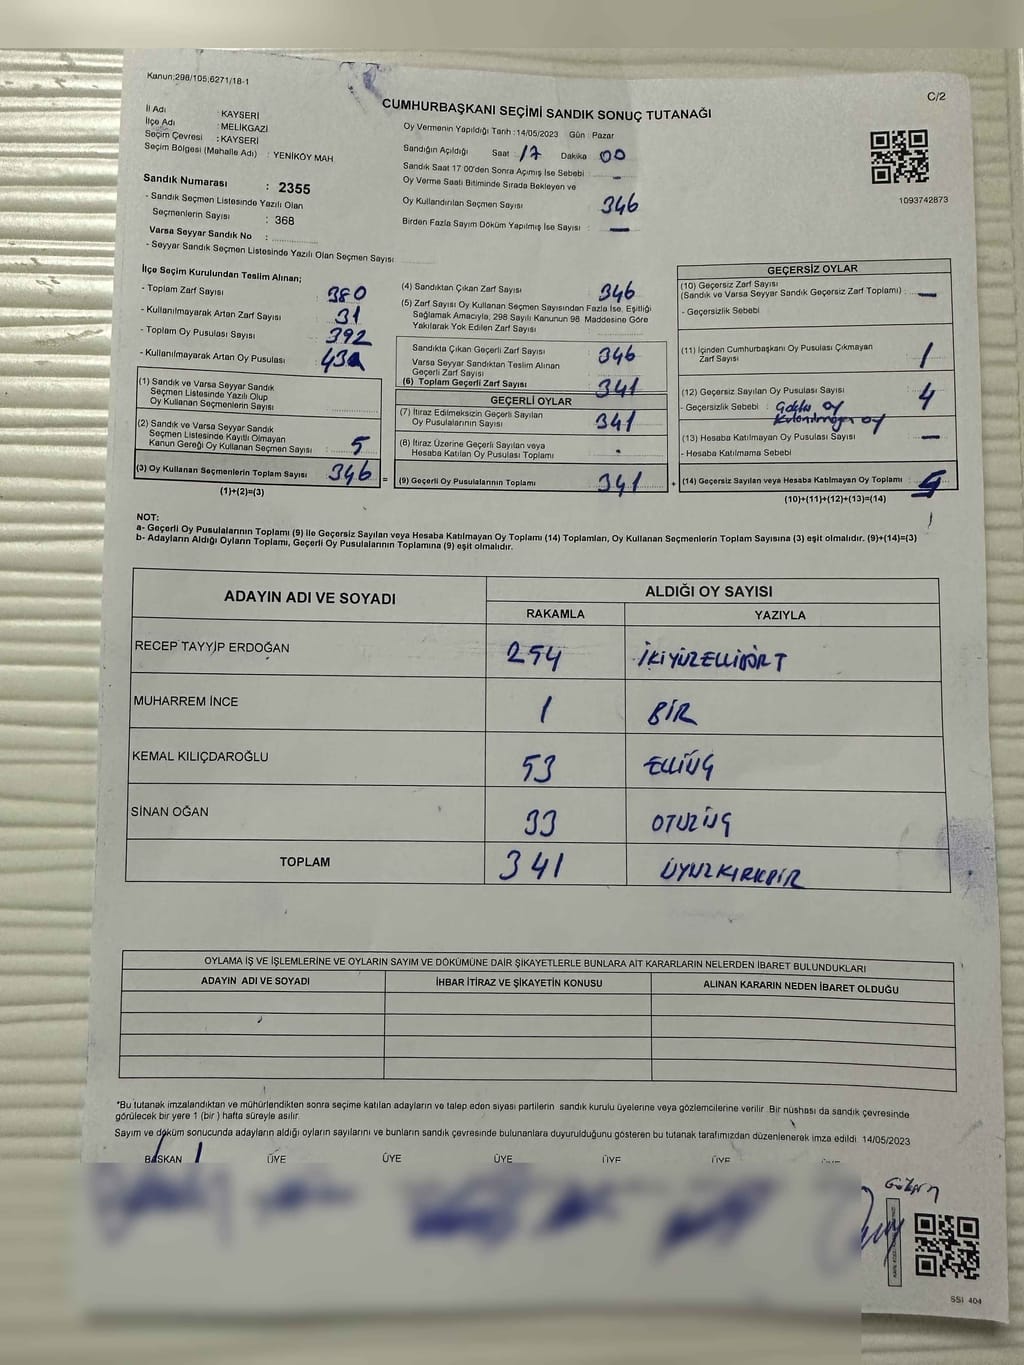 Kanun;298/105;6271/18-1
C/2
CUMHURBAŞKANI SEÇİMİ SANDIK SONUÇ TUTANAĞI
İl Adı : KAYSERİ
İlçe Adı : MELİKGAZİ
Seçim Çevresi : KAYSERİ
Seçim Bölgesi (Mahalle Adı) : YENİKÖY MAH.
Sandık Numarası : 2355
- Sandık Seçmen Listesinde Yazılı Olan
Seçmenlerin Sayısı : 368
Varsa Seyyar Sandık No :
- Seyyar Sandık Seçmen Listesinde Yazılı Olan Seçmen Sayısı
Oy Vermenin Yapıldığı Tarih :14/05/2023 Gün : Pazar
Sandığın Açıldığı Saat : 17 Dakika 00
Sandık Saat 17:00'den Sonra Açımış İse Sebebi : -
Oy Verme Saati Bitiminde Sırada Bekleyen ve
Oy Kullandırılan Seçmen Sayısı 346
Birden Fazla Sayım Döküm Yapılmış İse Sayısı : -
1093742873
İlçe Seçim Kurulundan Teslim Alınan;
- Toplam Zarf Sayısı : 380
- Kullanılmayarak Artan Zarf Sayısı : 31
- Toplam Oy Pusulası Sayısı : 392
- Kullanılmayarak Artan Oy Pusulası
(1) Sandık ve Varsa Seyyar Sandık
Seçmen Listesinde Yazılı Olup
Oy Kullanan Seçmenlerin Sayısı
(2) Sandık ve Varsa Seyyar Sandık
Seçmen Listesinde Kayıtlı Olmayan
Kanun Gereği Oy Kullanan Seçmen Sayısı : 5
(3) Oy Kullanan Seçmenlerin Toplam Sayısı 346 =
(1)+(2)=(3)
(4) Sandıktan Çıkan Zarf Sayısı : 346
(5) Zarf Sayısı Oy Kullanan Seçmen Sayısından Fazla İse, Eşitliği
Sağlamak Amacıyla, 298 Sayılı Kanunun 98. Maddesine Göre
Yakılarak Yok Edilen Zarf Sayısı :
Sandıkta Çıkan Geçerli Zarf Sayısı : 346
Varsa Seyyar Sandıktan Teslim Alınan
Geçerli Zarf Sayısı :
(6) Toplam Geçerli Zarf Sayısı : 341
GEÇERLİ OYLAR
(7) İtiraz Edilmeksizin Geçerli Sayılan
Oy Pusulasının Sayısı : 341
(8) İtiraz Üzerine Geçerli Sayılan veya
Hesaba Katılan Oy Pusulası Toplamı :
(9) Geçerli Oy Pusulalarının Toplamı : 341 +
GEÇERSİZ OYLAR
(10) Geçersiz Zarf Sayısı
(Sandık ve Varsa Seyyar Sandık Geçersiz Zarf Toplamı) : -
- Geçersizlik Sebebi :
(11) İçinden Cumhurbaşkanı Oy Pusulası Çıkmayan
Zarf Sayısı : 1
(12) Geçersiz Sayılan Oy Pusulası Sayısı : 4
- Geçersizlik Sebebi : oy
oy
(13) Hesaba Katılmayan Oy Pusulası Sayısı : -
- Hesaba Katılmama Sebebi
(14) Geçersiz Sayılan veya Hesaba Katılmayan Oy Toplamı : 5
(10)+(11)+(12)+(13)=(14)
NOT:
a- Geçerli Oy Pusulalarının Toplamı (9) İle Geçersiz Sayılan veya Hesaba Katılmayan Oy Toplamı (14) Toplamları, Oy Kullanan Seçmenlerin Toplam Sayısına (3) eşit olmalıdır. (9)+(14)=(3)
b- Adayların Aldığı Oyların Toplamı, Geçerli Oy Pusulalarının Toplamına (9) eşit olmalıdır.
ADAYIN ADI VE SOYADI ALDIĞI OY SAYISI
RAKAMLA YAZIYLA
RECEP TAYYİP ERDOĞAN 254 İKİYÜZELLİDÖRT
MUHARREM İNCE 1 BİR
KEMAL KILIÇDAROĞLU 53 ELLİÜÇ
SİNAN OĞAN 33 OTUZÜÇ
TOPLAM 341 ÜÇYÜZKIRKBİR
OYLAMA İŞ VE İŞLEMLERİNE VE OYLARIN SAYIM VE DÖKÜMÜNE DAİR ŞİKAYETLERLE BUNLARA AİT KARARLARIN NELERDEN İBARET BULUNDUKLARI
ADAYIN ADI VE SOYADI İHBAR İTİRAZ VE ŞİKAYETİN KONUSU ALINAN KARARIN NEDEN İBARET OLDUĞU
*Bu tutanak imzalandıktan ve mühürlendikten sonra seçime katılan adayların ve talep eden siyasi partilerin sandık kurulu üyelerine veya gözlemcilerine verilir. Bir nüshası da sandık çevresinde
görülecek bir yere 1 (bir ) hafta süreyle asılır.
Sayım ve döküm sonucunda adayların aldığı oyların sayılarını ve bunların sandık çevresinde bulunanlara duyurulduğunu gösteren bu tutanak tarafımızdan düzenlenerek imza edildi. 14/05/2023
BAŞKAN ÜYE ÜYE ÜYE ÜYE ÜYE
SSI 404